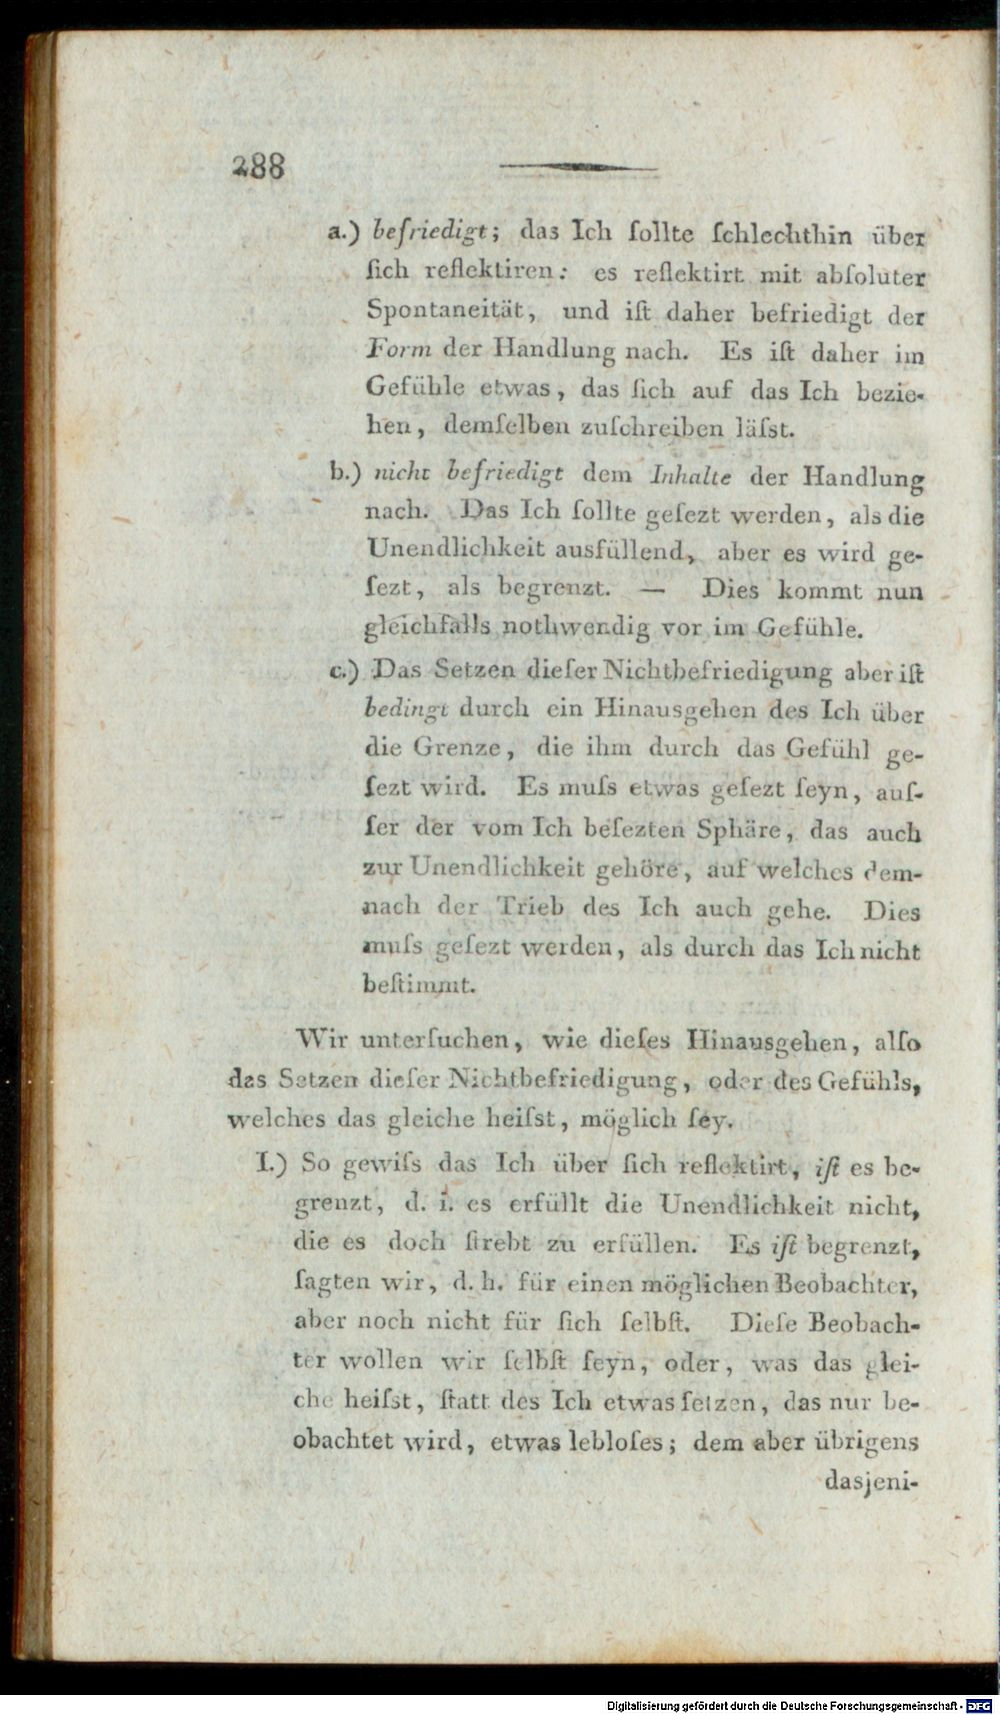 288
a.) befriedigt; das Ich ſollte ſchlechthin über
ſich reflektiren: es reflektirt mit abſoluter
Spontaneität, und iſt daher befriedigt der
Form der Handlung nach. Es iſt daher im
Gefühle etwas, das ſich auf das Ich bezie-
hen, demſelben zuſchreiben läſst.
b.) nicht befriedigt dem Inhalte der Handlung
nach. Das Ich ſollte geſezt werden, als die
Unendlichkeit ausfüllend, aber es wird ge-
ſezt, als begrenzt. — Dies kommt nun
gleichfalls nothwendig vor im Gefühle.
c.) Das Setzen dieſer Nichtbefriedigung aber iſt
bedingt durch ein Hinausgehen des Ich über
die Grenze, die ihm durch das Gefühl ge-
ſezt wird. Es muſs etwas geſezt ſeyn, auſ-
ſer der vom Ich beſezten Sphäre, das auch
zur Unendlichkeit gehöre, auf welches dem-
nach der Trieb des Ich auch gehe. Dies
muſs geſezt werden, als durch das Ich nicht
beſtimmt.
Wir unterſuchen, wie dieſes Hinausgehen, alſo
das Setzen dieſer Nichtbefriedigung, oder des Gefühls,
welches das gleiche heiſst, möglich ſey.
I.) So gewiſs das Ich über ſich reflektirt, iſt es be-
grenzt, d. i. es erfüllt die Unendlichkeit nicht,
die es doch ſtrebt zu erfüllen. Es iſt begrenzt,
ſagten wir, d. h. für einen möglichen Beobachter,
aber noch nicht für ſich ſelbſt. Dieſe Beobach-
ter wollen wir ſelbſt ſeyn, oder, was das glei-
che heiſst, ſtatt des Ich etwas ſetzen, das nur be-
obachtet wird, etwas lebloſes; dem aber übrigens
dasjeni-
Digitalisierung gefördert durch die Deutsche Forschungsgemeinschaft - DFG